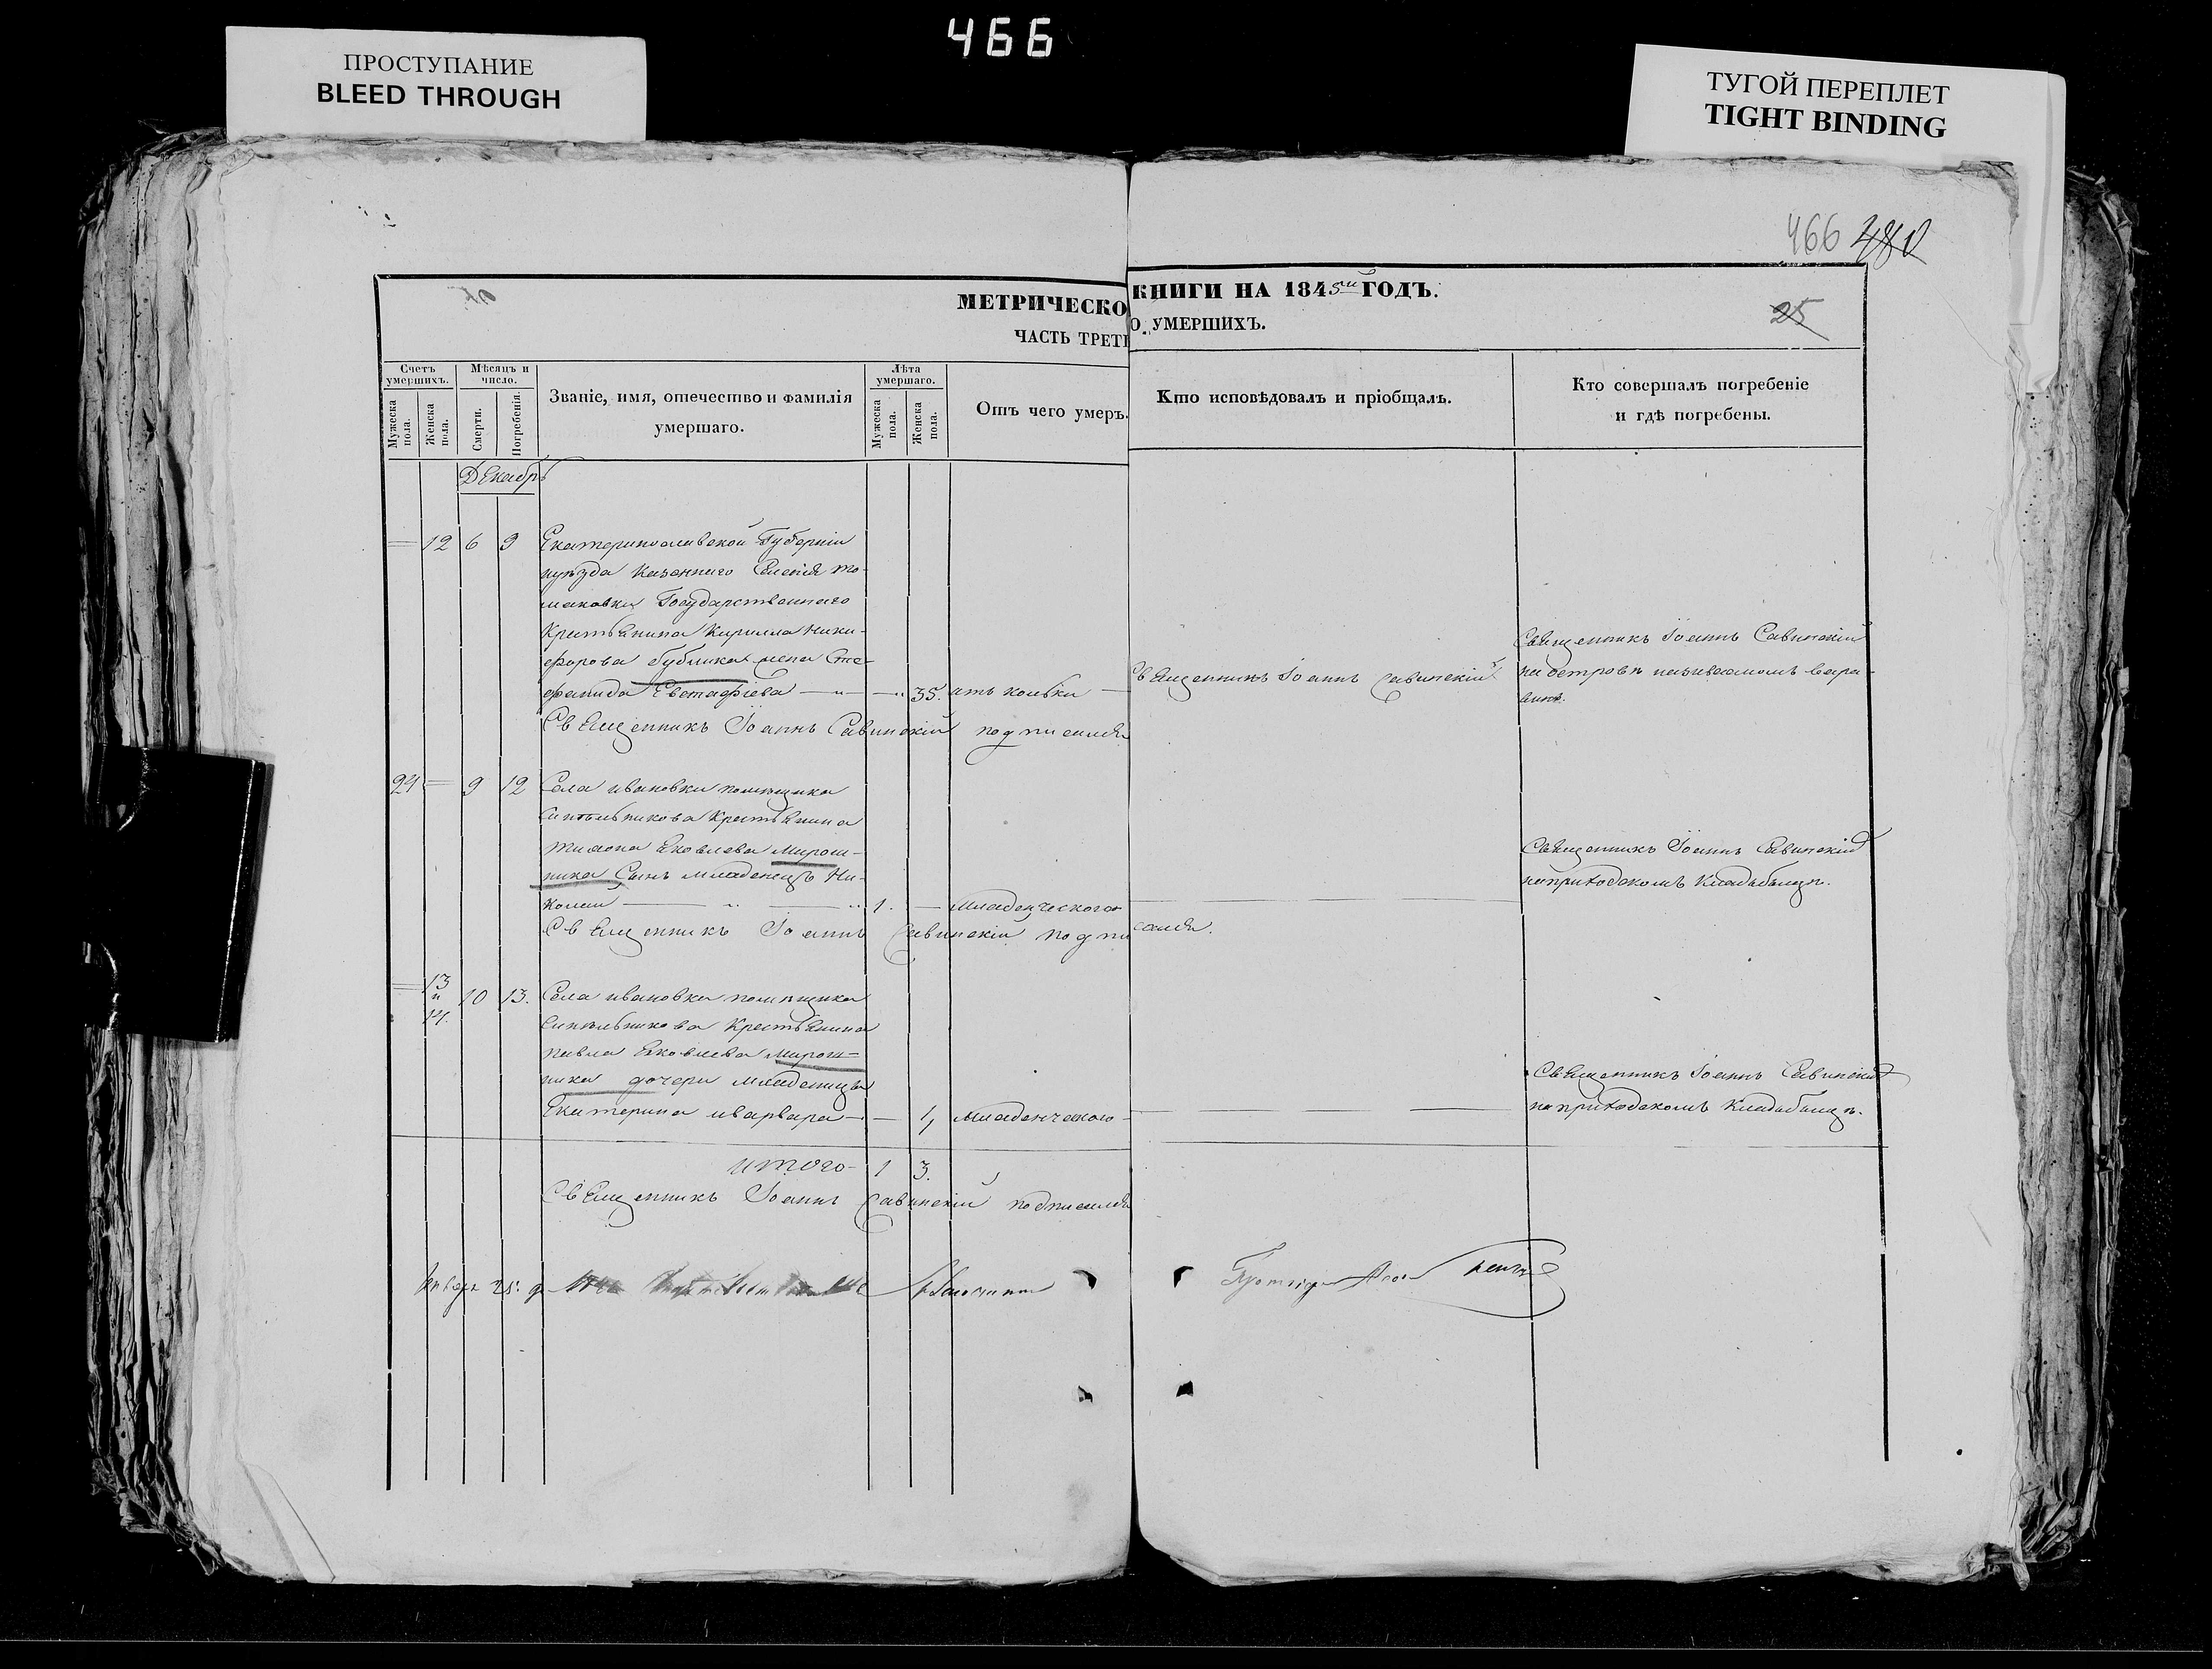 466
ПРОСТУПАНИЕ
BLEED THROUGH
ТУГОЙ ПЕРЕПЛЕТ
TIGHT BINDING
466 480
25
МЕТРИЧЕСКО КНИГИ НА 1845й ГОДЪ.
ЧАСТЬ ТРЕТЬ О УМЕРШИХЪ.
Счетъ умершихъ.
Мужеска пола.
Женска пола.
Мѣсяцъ и число.
Смерти.
Погребенія.
Званіе, имя, отечество и фамилія умершаго.
Лѣта умершаго.
Мужеска пола.
Женска пола.
Отъ чего умеръ.
Кто исповѣдовалъ и пріобщалъ.
Кто совершалъ погребеніе
и гдѣ погребены.
Декабрь
12 6 9 Екатеринославской Губерніи
иуѣзда Казеннаго Селенія То-
маковки Государственнаго
Крестьянина Кирилла Ники-
форова Бублика жена Сте-
фанида Евстафіева 35. отъ колѣки
Священникъ Іоаннъ Савинскій
Священникъ Іоаннъ Савинскій
на островѣ называемомъ Вара-
Священникъ Іоаннъ Савинскій подписался
24 9 12 Села ивановки помѣщика
Синельникова Крестьянина
Тимофа Яковлева Мирош-
ника Сынъ младенецъ Ни-
колай 1. Младенческаго
Священникъ Іоаннъ Савинскій
наприходскомъ Кладбищѣ.
Священникъ Іоаннъ Савинскій подписался.
13 и 14. 10 13. Села ивановки помѣщика
Синельникова Крестьянина
павла Яковлева Мирош-
ника дочери младенцы
Екатерина иварвара 1, Младенческаго
Священникъ Іоаннъ Савинскій
наприходскомъ Кладбищѣ.
итого 1 3.
Священникъ Іоаннъ Савинскій подписался
Января 25. д